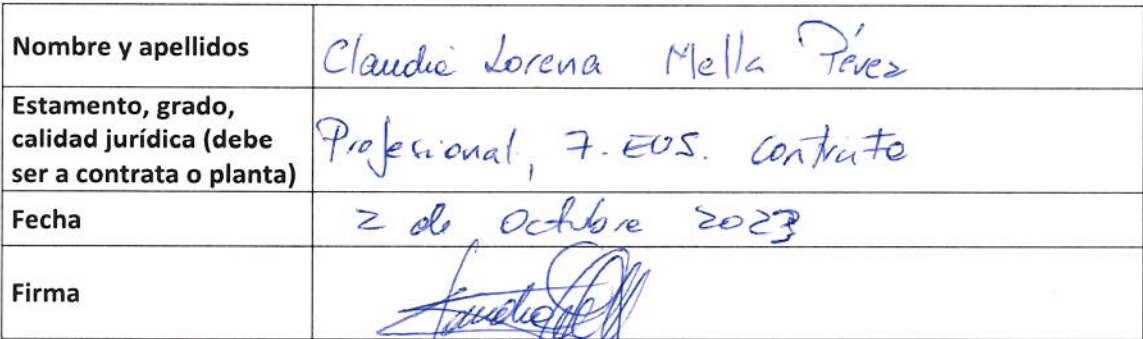 Nombre y apellidos
Claudia Lorena Mella Pérez
Estamento, grado,
calidad jurídica (debe
ser a contrata o planta)
Profesional, 7. EUS. contrata
Fecha
2 de Octubre 2023
Firma